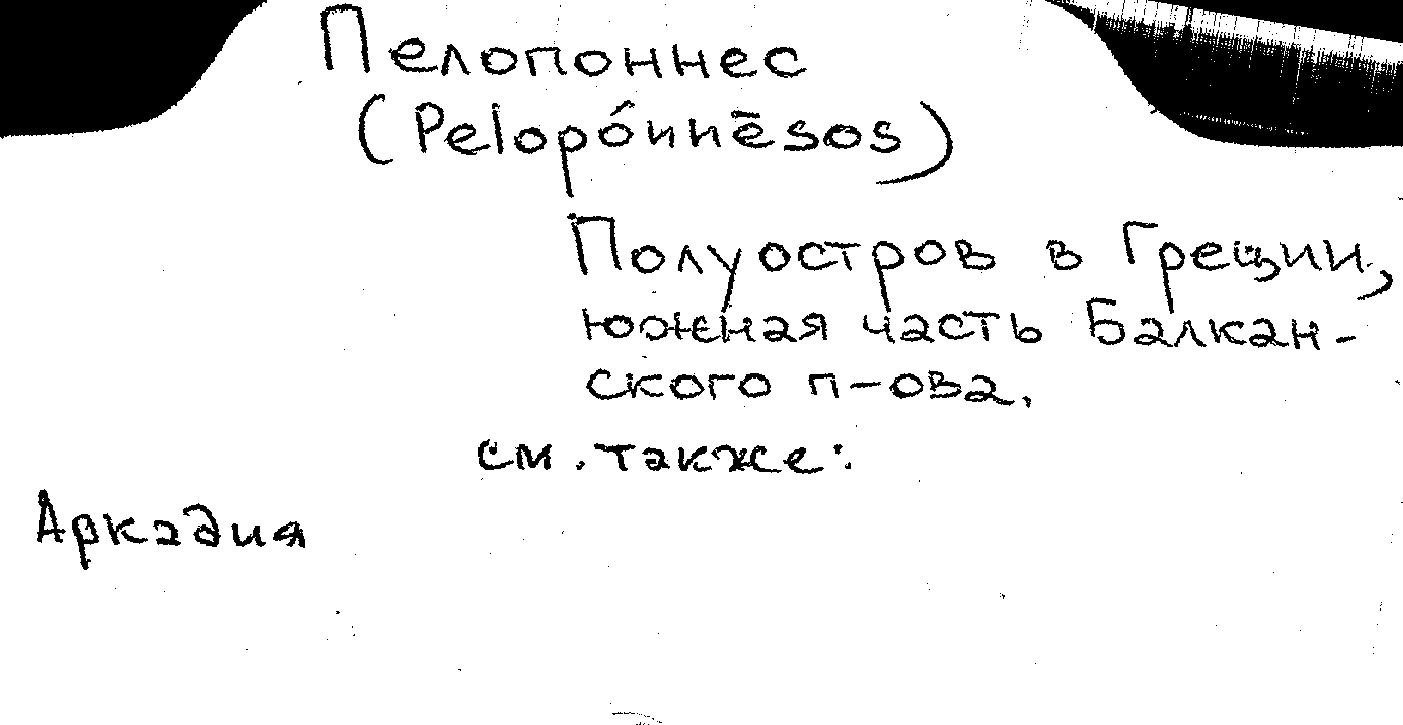 Пелопоннес
(Pelopónnēsos)
Полуостров в Греции,
южная часть Балкан-
ского п-ова.
см. также:
Аркадия